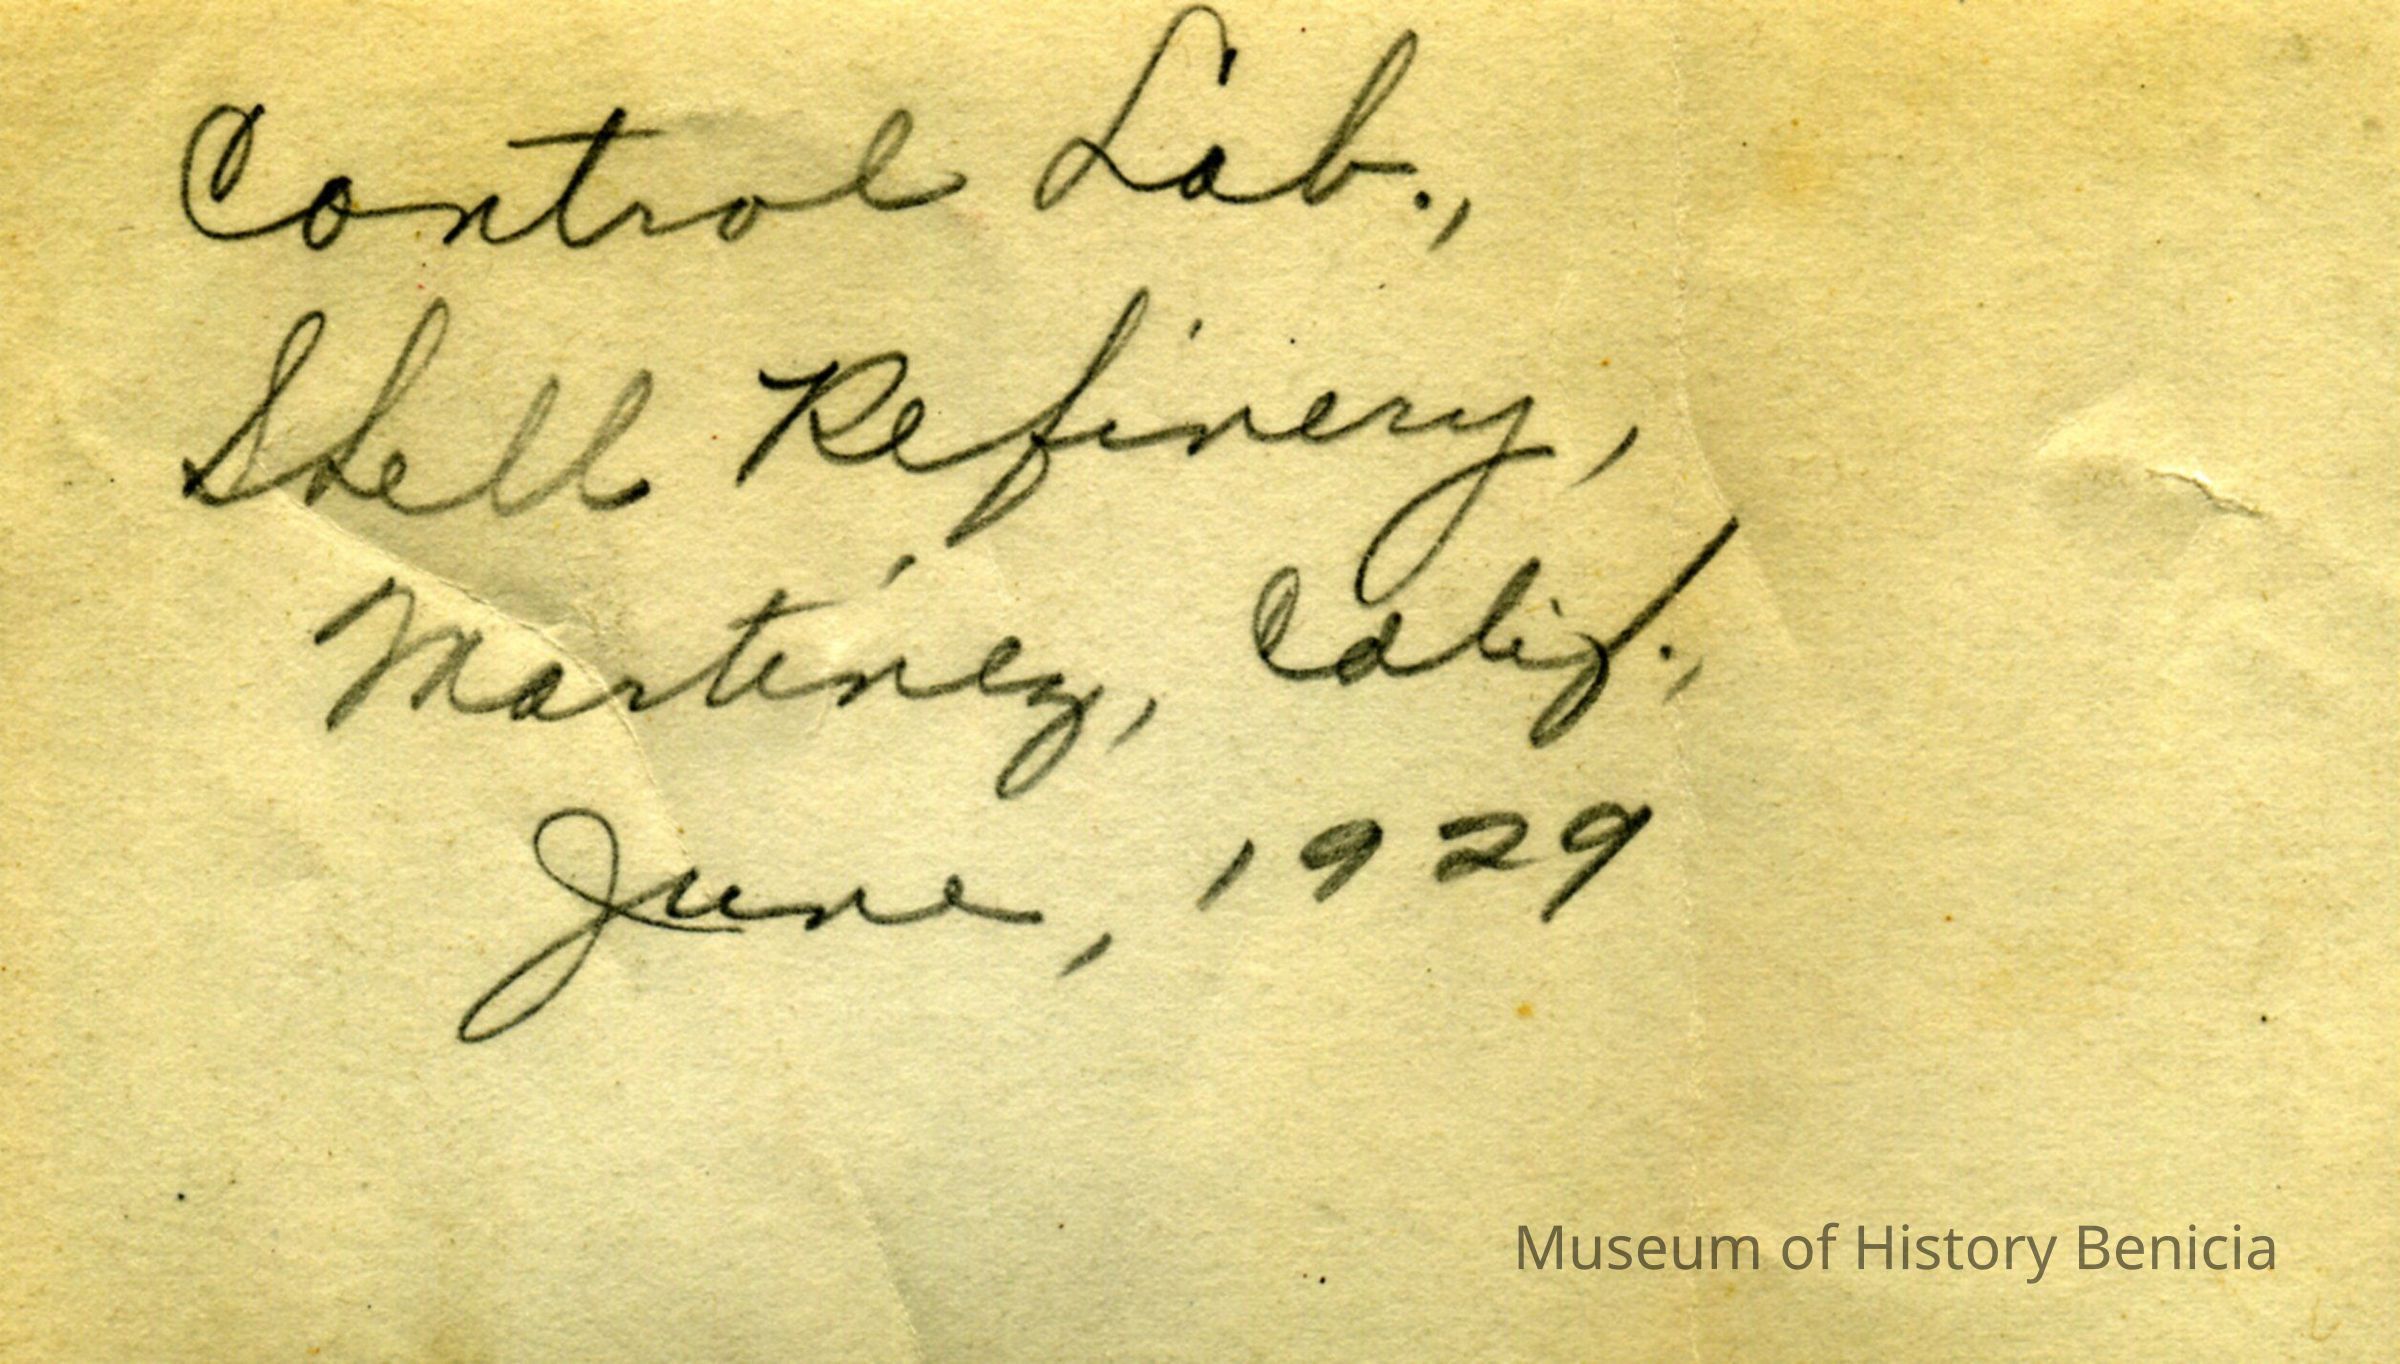 Control Lab.,
Shell Refinery,
Martinez, Calif.,
June, 1929
Museum of History Benicia